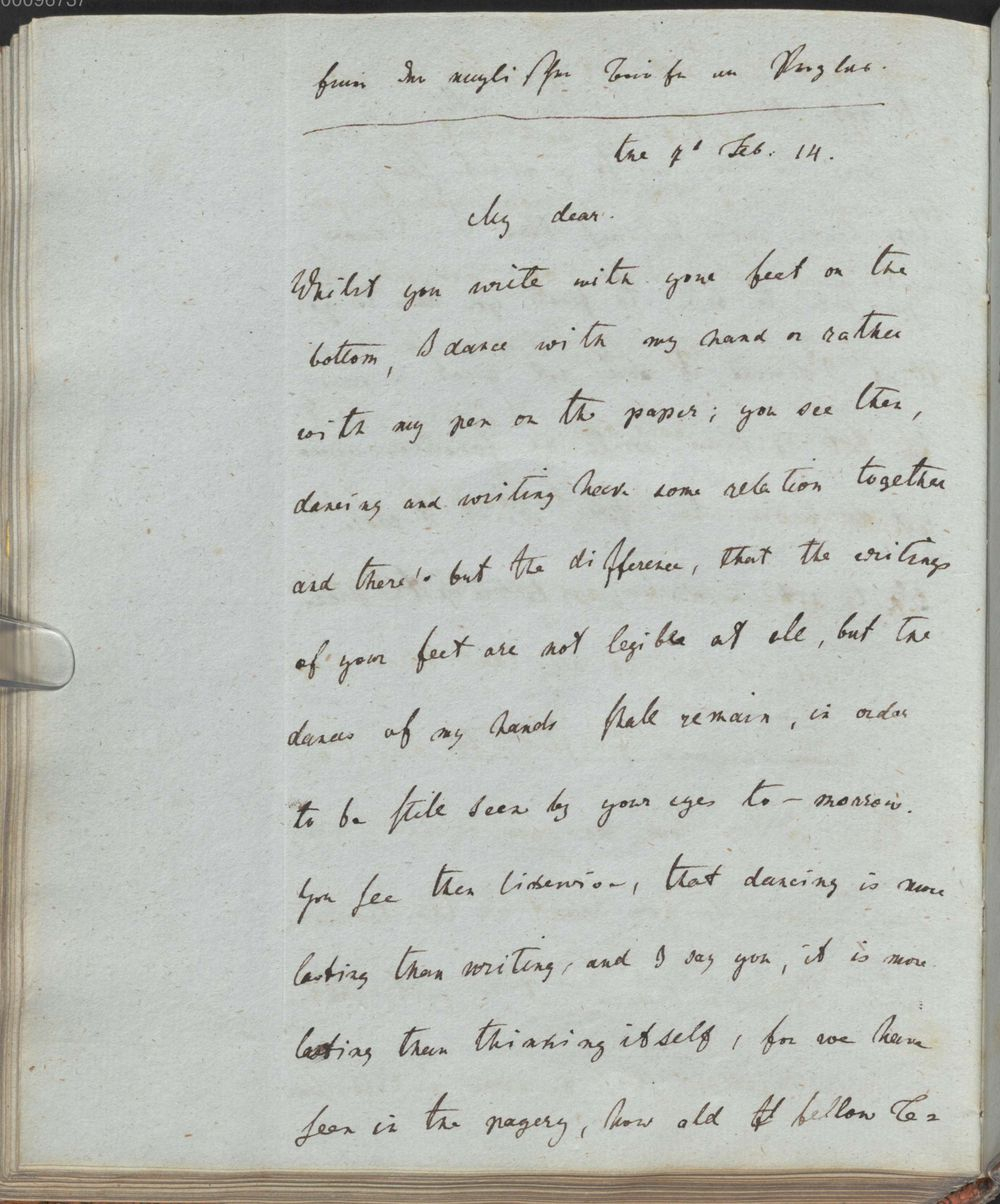 00096737
einer der englischen Briefe an
the 7t Feb: 14.
My dear.
Whilst you write with your feet on the
bottom, I dance with my hand or rather
with my pen on the paper; you see then,
dancing and writing have some relation together
and there's but the difference, that the writings
of your feet are not legible at all, but the
dances of my hands shall remain, in order
to be still seen by your eyes to-morrow.
You see then likewise, that dancing is more
lasting than writing, and I say you, it is more
lasting than thinking itself, for we have
seen in the pagery, how old fellow